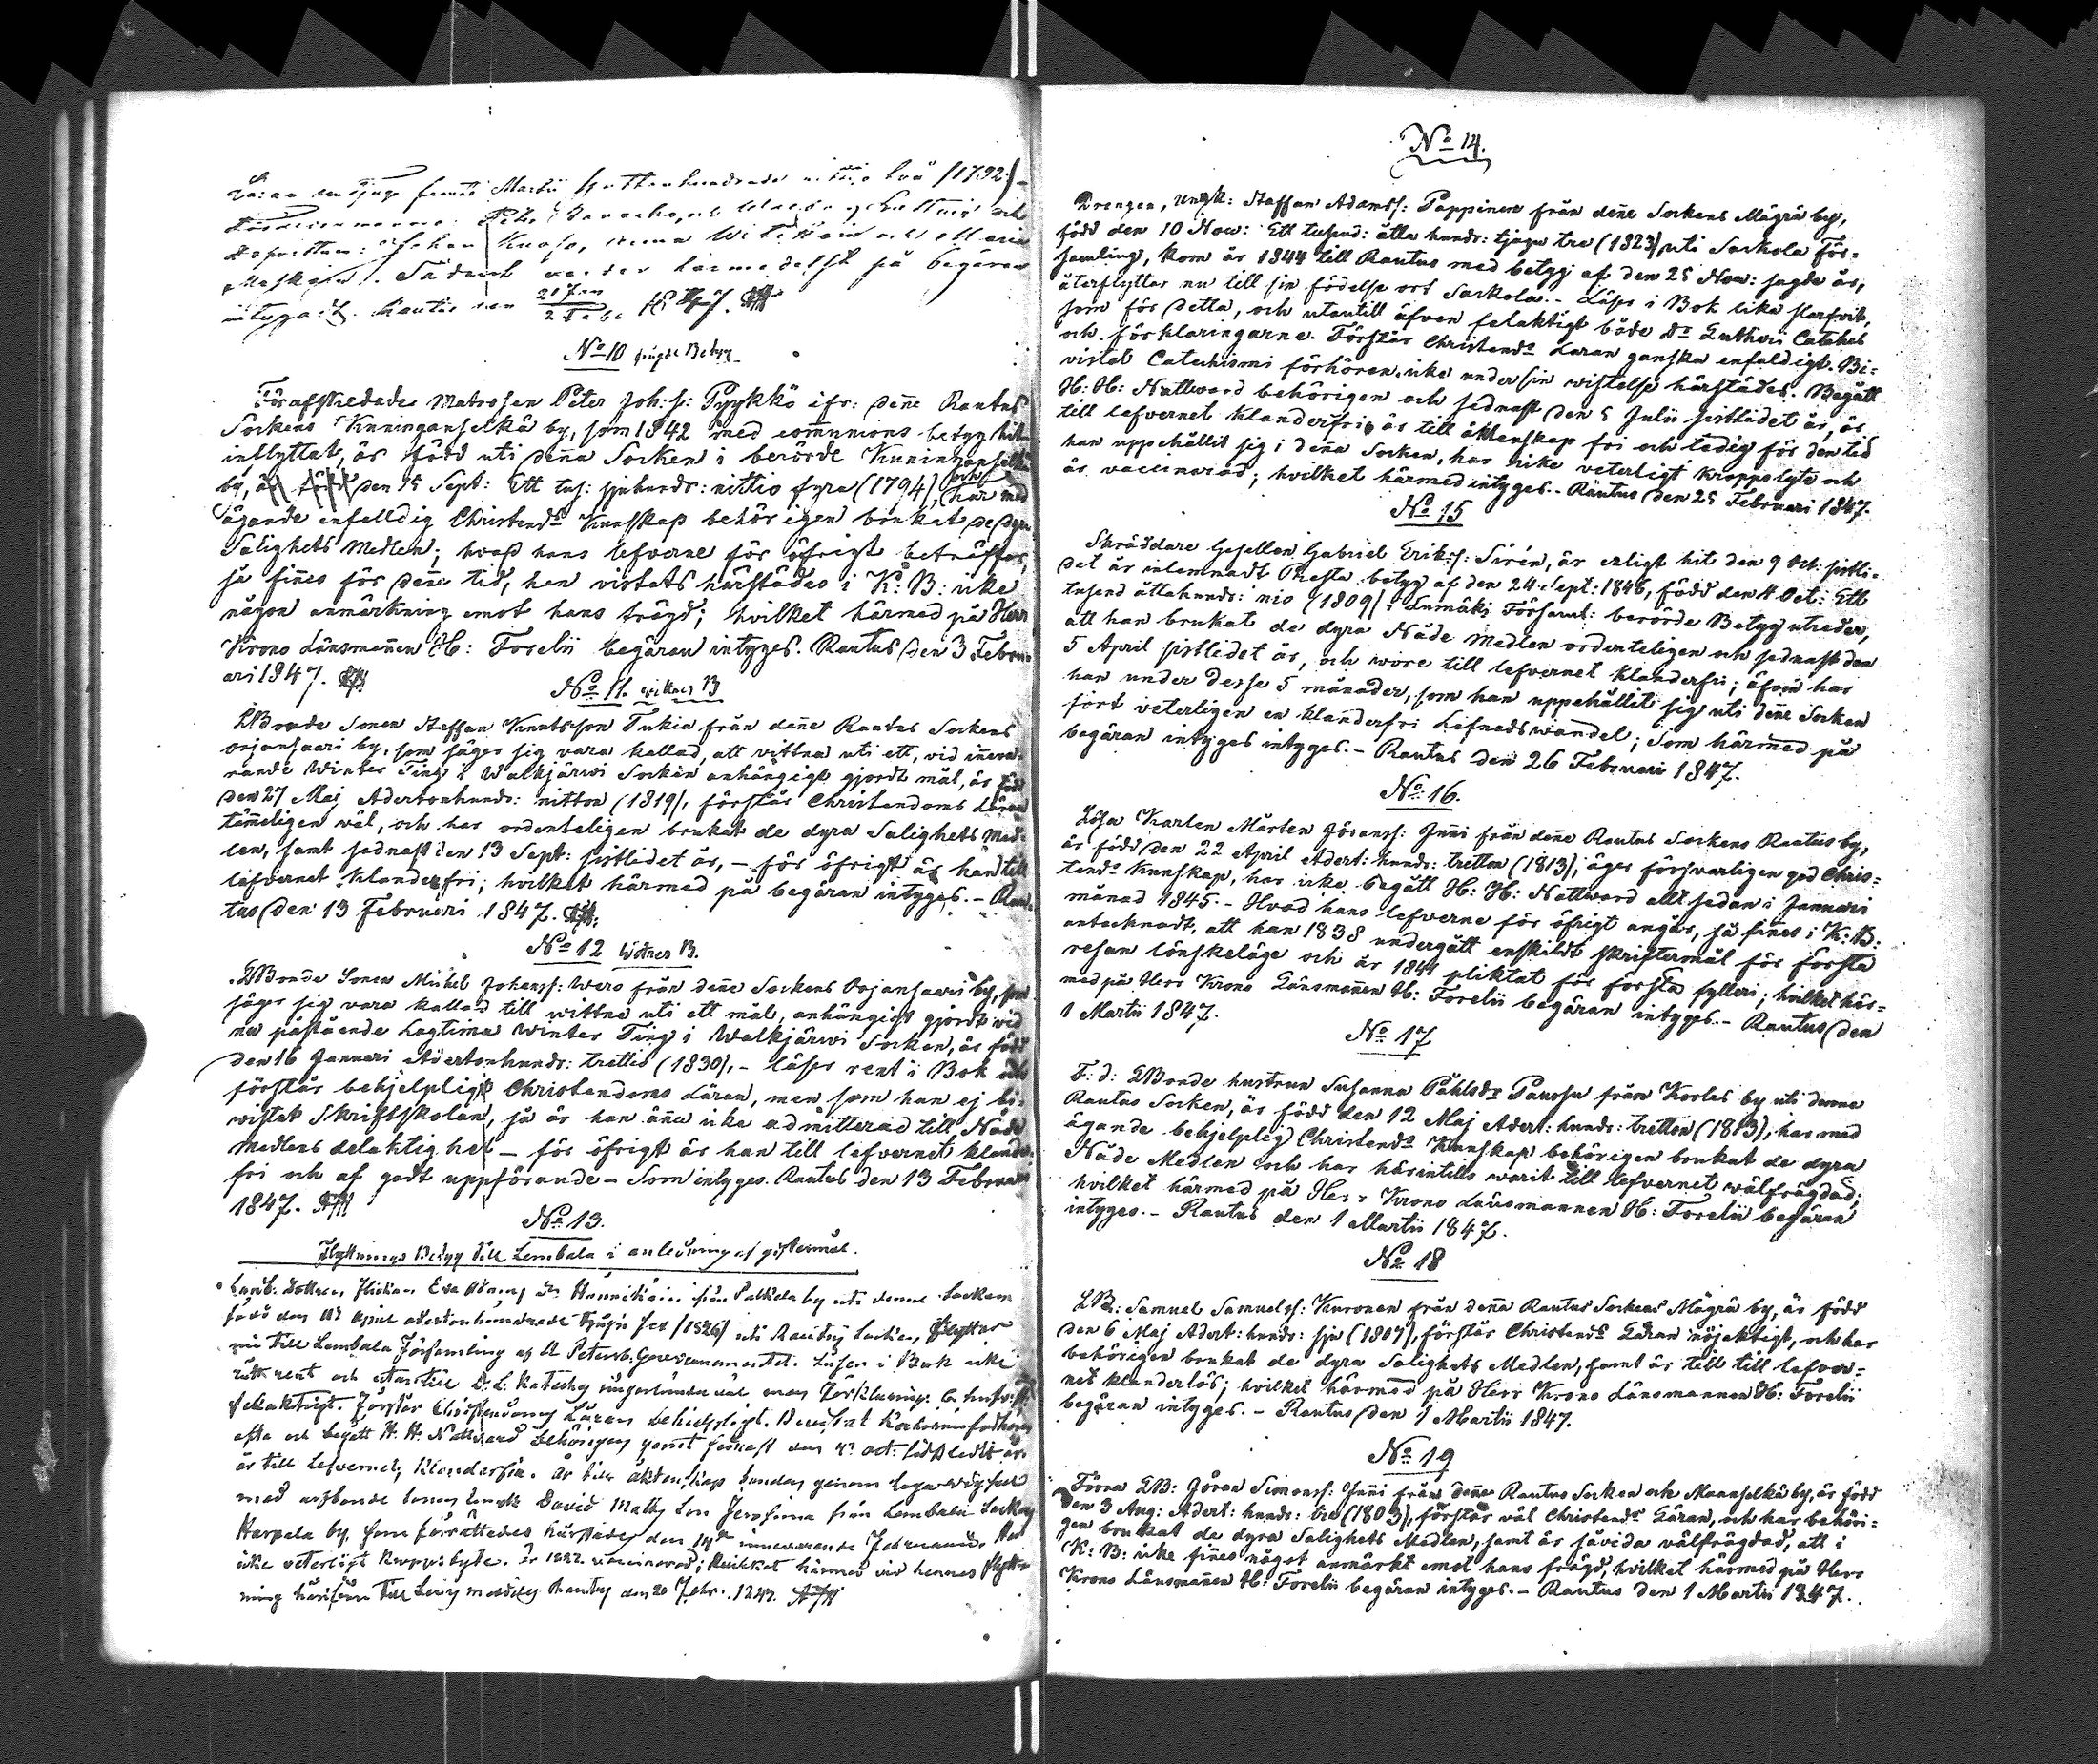 femte Martii nittio två (1792)
Såsom begäran
21 Jan
No 10 frägde Betyg
Förafskedade Matrosen Peter Joh: s: Pyykkö ifr: deñe Rautus
Sockens Kuninganselkä by, som 1842 med com̃unions-betyg hit
inflyttat, är född uti deña Socken i berörde Kuninganselkä
by, den 15 Sept: Ett tus: sjuhundr: nittio fyra (1794), och har med
ägande enfalldig Christend:s Kunskap behörigen brukat de dyra
Salighets Medlen; hvad hans lefverne för öfrigt beträffar,
så fiñes för deñe tid, han vistats härstädes i K: B: icke
någon anmärkning emot hans frägd; hvilket härmed på Herr
Krono Länsmañen H: Forelii begäran intyges. Rautus den 3 Febru-
ari 1847.
No 11. wittnes B
LBonde Sonen Staffan Knutsson Tukia från deñe Rautus Sockens
Orjansaari by, som säger sig vara kallad, att vittna uti ett, vid iñeva-
rande Winter Ting i Walkjärwi Socken anhängigt gjordt mål, är född
den 27 Maj Adertonhundr: nitton (1819), förstår Christendoms Läran
tem̃eligen wäl, och har ordenteligen brukat de dyra Salighets Med-
len, samt sednast den 13 Sept: sistlidet år, – för öfrigt är han till
lefvernet klanderfri; hvilket härmed på begäran intyges. – Rau-
tus den 13 Februari 1847.
No 12 Wittnes B.
LBonde Sonen Michel Johanss: Wero från deñe Sockens Orjansaari by, som
säger sig vara kallad till wittne uti ett mål, anhängigt gjordt vid
nu påstående Lagtima Winter Ting i Walkjärwi Socken, är född
den 16 Januari Adertonhundr: trettio (1830), – läser rent i Bok och
förstår behjelpligt Christendoms Läran, men som han ej bi-
vistat Skriftskolan, så är han äñu icke admitterad till Nåde
Medlens delaktighet – för öfrigt är han till lefvernet klander-
fri och af godt uppförande – Som intyges. Rautus den 13 Februari
1847.
No 13.
Flyttnings Betyg till Lembala i anledning af giftermål.
Landb. Dottren, Flickan Eva från Palkeala by uti denne Socken
född den April adertonhundrade tjugu sex (1826) uti Rautus Socken, flyttar
nu till Lembala Församling af St Petersb. Gouvernementet. Läser i Bok icke
rätt rent och utantill D. L. Kateches någorlunda väl men Förklaring.
felaktigt. Förstår Christendoms Läran behjelpligt. Bevistat
ofta och begått H. H. Nattvard behörigen samt sednast den Oct: sistledit år
är till Lefvernet, klanderfri. Är till äktenskap bunden genom laga vigsel
med Bonde Sonen David Matts Son från Lembala Socken
Harpala by, som förrättades härstädes den 14de innevarande Februarii. Har
icke veterligt kroppslyte. Är vaccinerad; hvilket härmed vid hennes flytt-
ning härifrån till Rautus den 20 Febr. 1847.
No 14.
Drengen, Ungk: Staffan Adamss: Pappinen från deñe Sockens Mägrä by,
född den 10 Nov: Ett tusend: åtta hundr: tjugu tre (1823), uti Sackola För-
samling, kom år 1844 till Rautus med betyg af den 25 Nov: sagde år,
återflyttar nu till sin födelse ort Sackola. – Läser i Bok lika slarfvit,
som för detta, och utantill äfven felaktigt både Dr Lutheri Cateches
och förklaringarne. Förstår Christend:s Läran ganska enfaldigt. Bi-
vistat Catechismi förhören icke under sin wistelse härstädes. Begått
H: H: Nattward behörigen och sednast den 5 Julii sistlidet år, är
till lefvernet klanderfri, är till äktenskap fri och ledig för den tid
han uppehållit sig i deña Socken, har icke veterligt kroppslyte och
är vaccinerad; hvilket härmed intyges. – Rautus den 25 Februari 1847.
No 15
Skräddare Gesellen Gabriel Eriks: Sirén, är enligt hit den 9 Oct: sistli-
det år inlemnadt Presta betyg af den 24 Sept: 1846, född den 4 Oct: Ett
tusend åttahundr: nio (1809) i Lumäki Församl: berörde Betyg utreder,
att han brukat de dyra Nåde Medlen ordenteligen och sednast den
5 April sistlidet år, och wore till lefvernet klanderfri; äfven har
han under desse 5 månader, som han uppehållit sig uti deñe Socken
fört veterligen en klanderfri Lefnadswandel; Som härmed på
begäran intyges intyges. – Rautus den 26 Februari 1847.
No 16.
Lösa Karlen Mårten Jöranss: Iñi från deñe Rautus Sockens Rautus by,
är född den 22 April Adert: hundr: tretton (1813), äger försvarligen god Chris-
tend:s Kunskap, har icke begått H: H: Nattward allt sedan i Januari
månad 1845. – Hvad hans lefverne för öfrigt angår, så fiñes i K: B:
antecknadt, att han 1838 undergått enskildt skriftermål för första
resan lönskeläge och år 1844 pliktat för första fylleri; hvilket här-
med på Herr Krono Länsmañen H: Forelii begäran intyges. – Rautus den
1 Martii 1847.
No 17
F: d: LBonde hustrun Susanna Påhlsdr Paussu från Korles by uti denne
Rautus Socken, är född den 12 Maj Adert: hundr: tretton (1813), har med
ägande behjelplig Christend:s Kunskap behörigen brukat de dyra
Nåde Medlen och har härintills warit till lefvernet wälfrägdad;
hvilket härmed på Herr Krono Länsmannen H: Forelii begäran
intyges. – Rautus den 1 Martii 1847.
No 18
LB: Samuel Samuels: Kuronen från deña Rautus Sockens Mägrä by, är född
den 6 Maj Adert: hundr: sju (1807), förstår Christend:s Läran nöjaktigt, och har
behörigen brukat de dyra Salighets Medlen, samt är till till lefver-
net klanderlös; hvilket härmed på Herr Krono Länsmannen H: Forelii
begäran intyges. – Rautus den 1 Martii 1847.
No 19
Förra LB: Jöran Simonss: Iñi från deñe Rautus Socken och Maanselkä by, är född
den 3 Aug: Adert: hundr: tre (1803), förstår väl Christend:s Läran, och har behöri-
gen brukat de dyra Salighets Medlen, samt är såvida välfrägdad, att i
K: B: icke fiñes något anmärkt emot hans frägd, hvilket härmed på Herr
Krono Länsmañen H: Forelii begäran intyges. – Rautus den 1 Martii 1847.